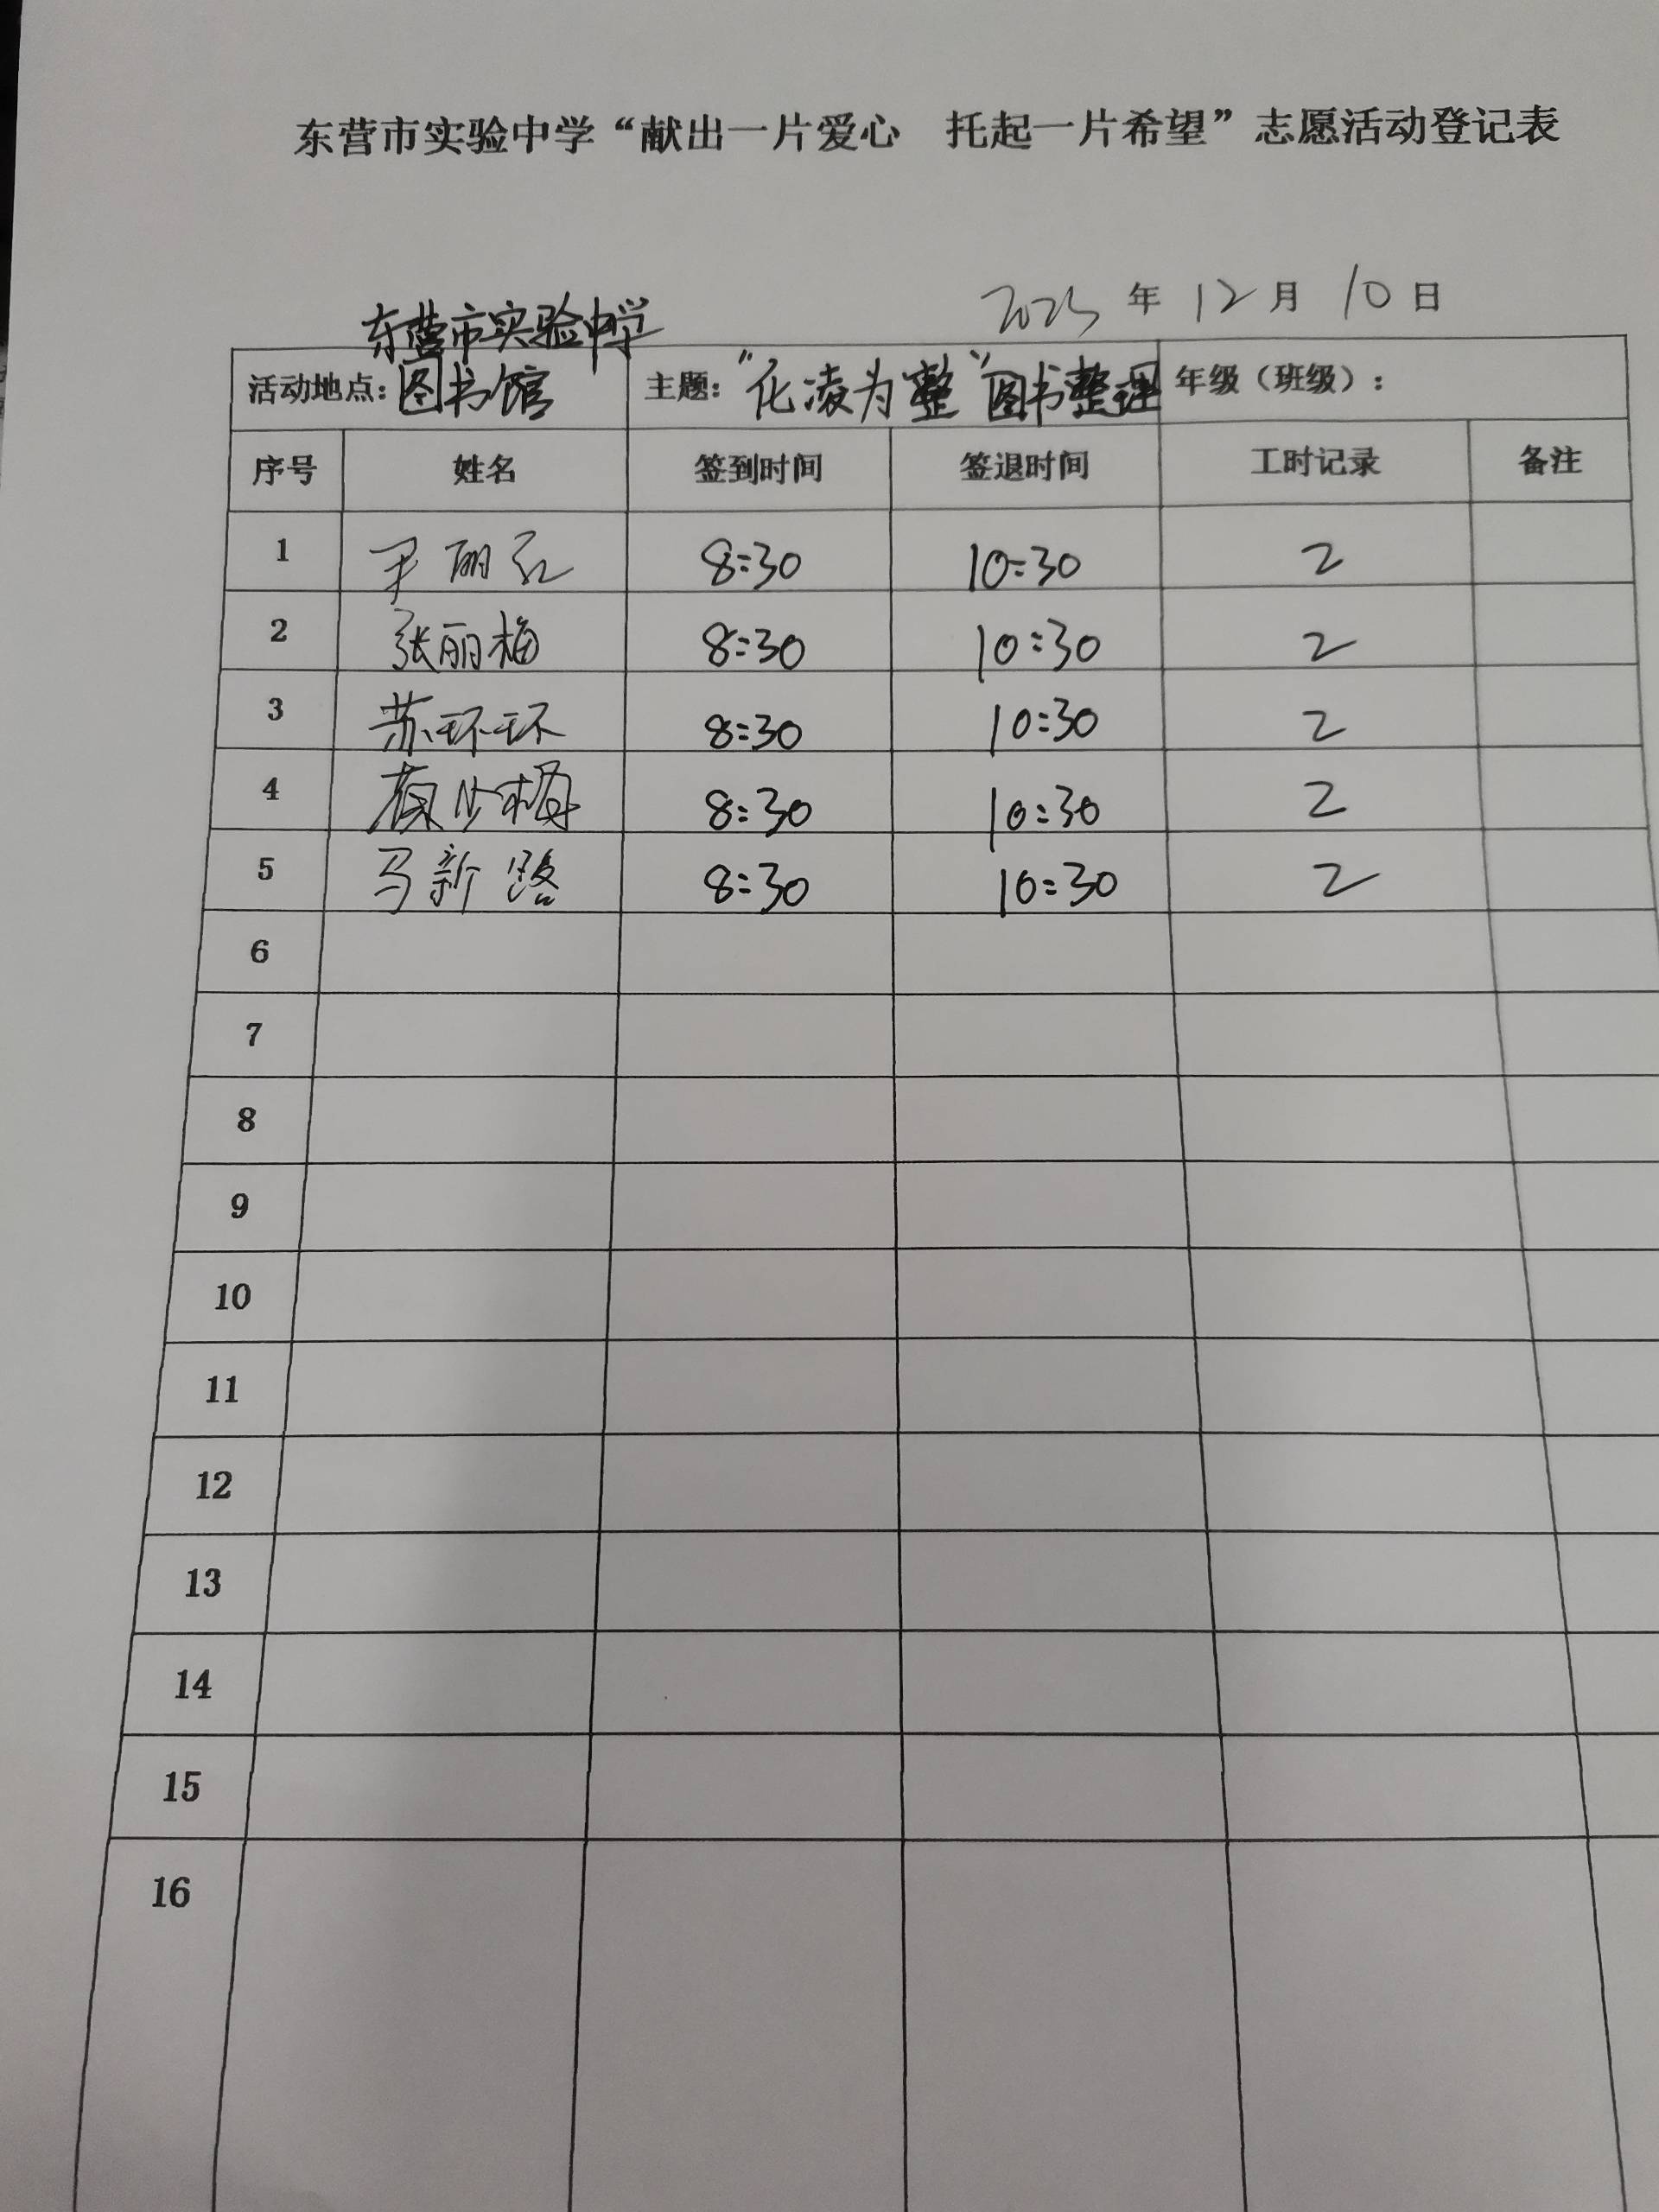 东营市实验中学“献出一片爱心 托起一片希望”志愿活动登记表
2025年12月10日
东营市实验中学
活动地点：图书馆 主题：“化凌为整”图书整理 年级（班级）：
序号 姓名 签到时间 签退时间 工时记录 备注
1 尹丽红 8:30 10:30 2
2 张丽梅 8:30 10:30 2
3 苏环环 8:30 10:30 2
4 梅 8:30 10:30 2
5 马新路 8:30 10:30 2
6
7
8
9
10
11
12
13
14
15
16